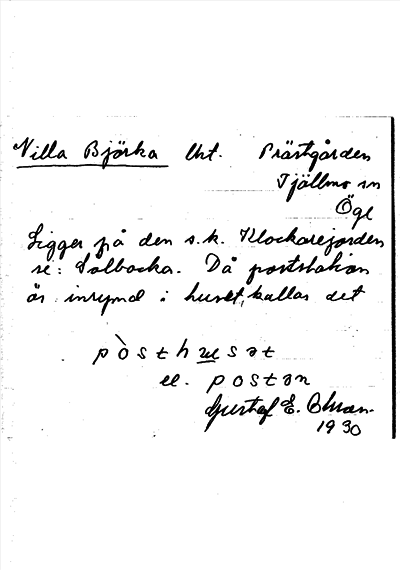 Villa Björka Uht. Prästgården
Tjällmo sn
Ögl
Ligger på den s.k. Klockarejorden
se: Solbacka. Då poststation
är inrymd i huset, kallas det
pòsthusət
el. postən
Gustaf E.
1930